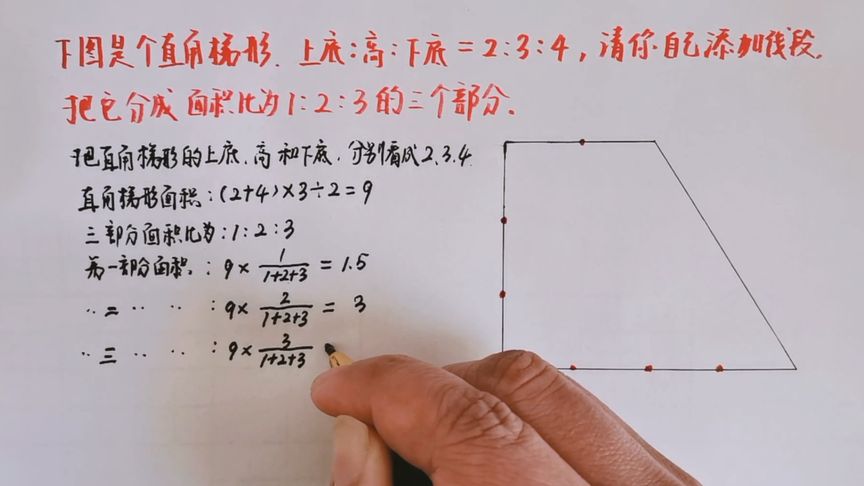 下图是个直角梯形.上底:高:下底=2:3:4,请你自己添加线段.
把它分成面积比为1:2:3的三个部分.
把直角梯形的上底.高和下底.分别看成2.3.4.
直角梯形面积:(2+4)×3÷2=9
三部分面积比为:1:2:3
第一部分面积:9×1/1+2+3=1.5
〃二〃〃:9×2/1+2+3=3
〃三〃〃:9×3/1+2+3